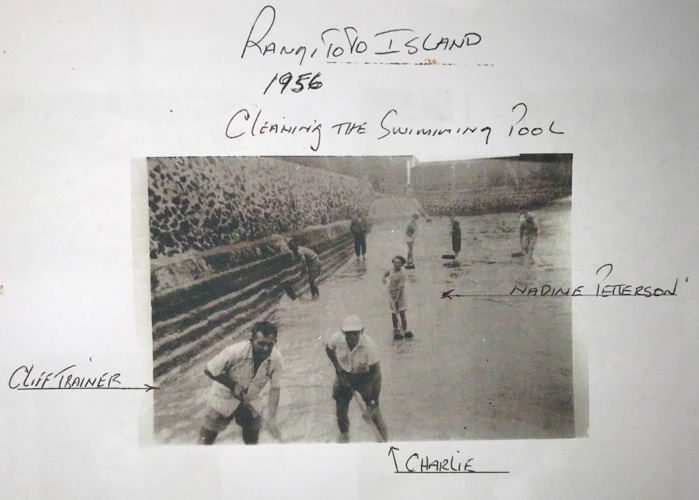 RANGITOTO ISLAND
1956
CLEANING THE SWIMMING POOL
NADINE PETTERSON'
CLIFF TRAINER
CHARLIE